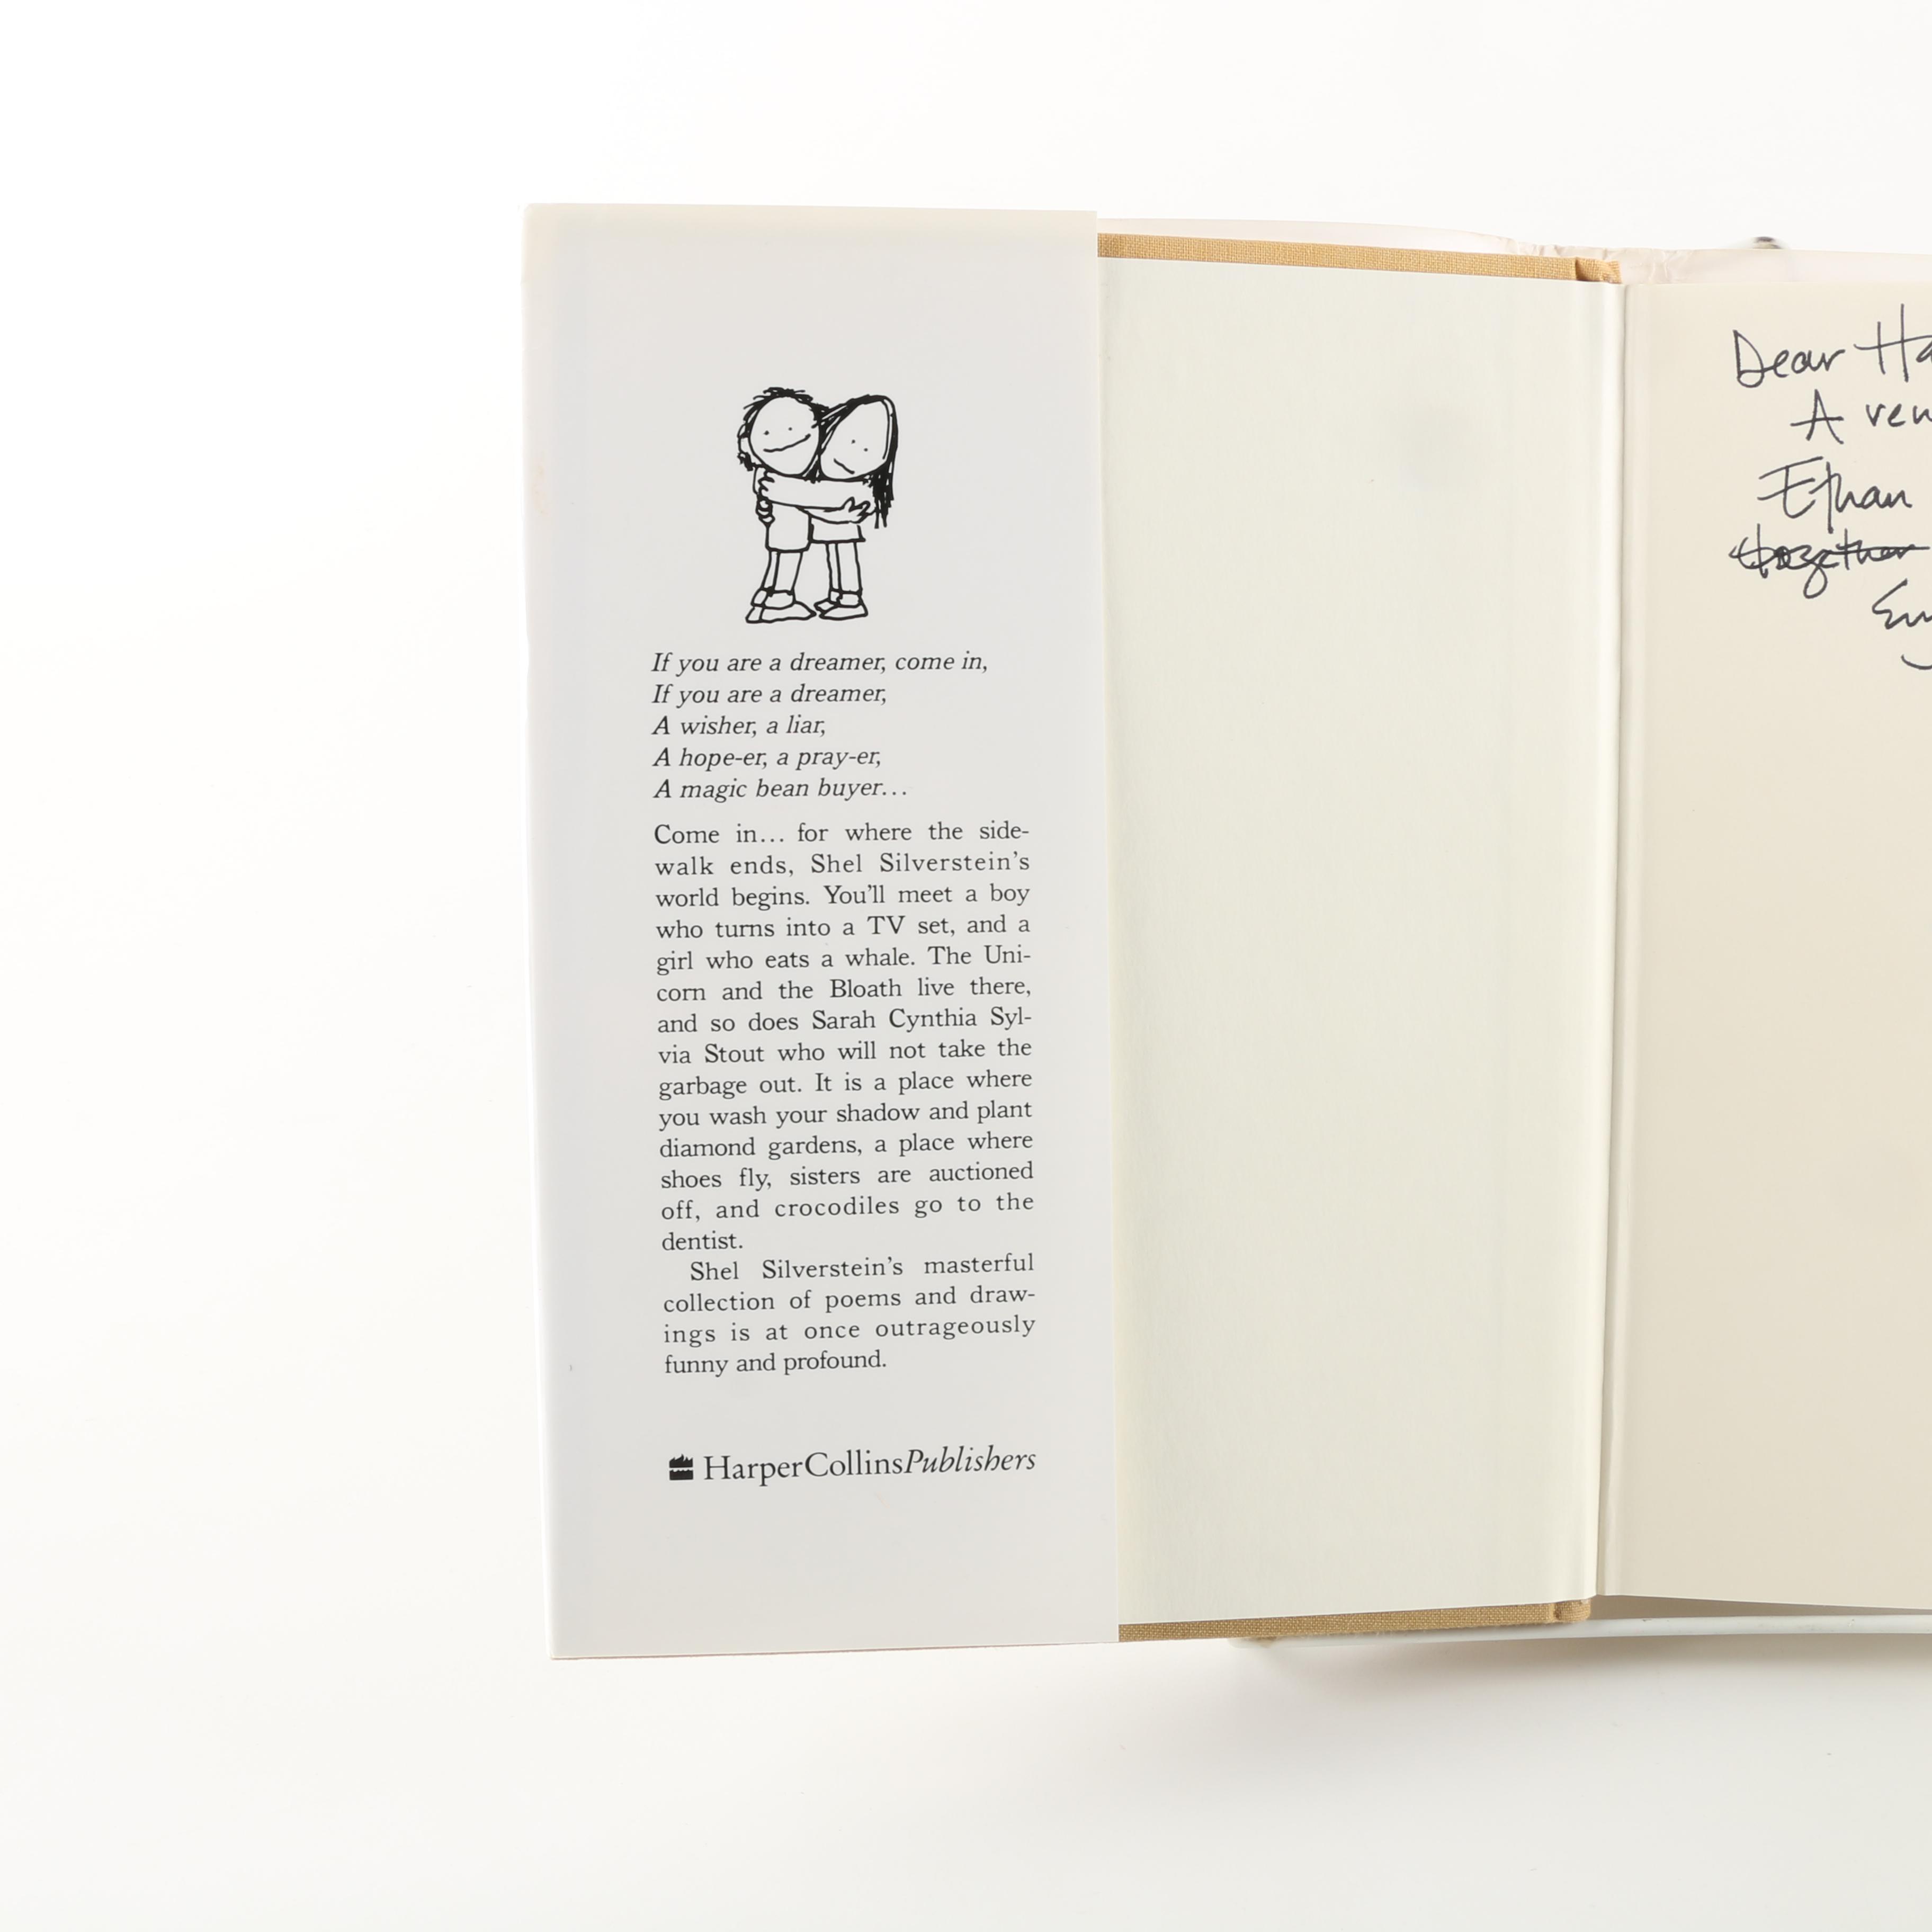 If you are a dreamer, come in,
If you are a dreamer,
A wisher, a liar,
A hope-er, a pray-er,
A magic bean buyer...
Come in... for where the side-
walk ends, Shel Silverstein's
world begins. You'll meet a boy
who turns into a TV set, and a
girl who eats a whale. The Uni-
corn and the Bloath live there,
and so does Sarah Cynthia Syl-
via Stout who will not take the
garbage out. It is a place where
you wash your shadow and plant
diamond gardens, a place where
shoes fly, sisters are auctioned
off, and crocodiles go to the
dentist.
Shel Silverstein's masterful
collection of poems and draw-
ings is at once outrageously
funny and profound.
HarperCollinsPublishers
Dear Ha
A
Ethan
together